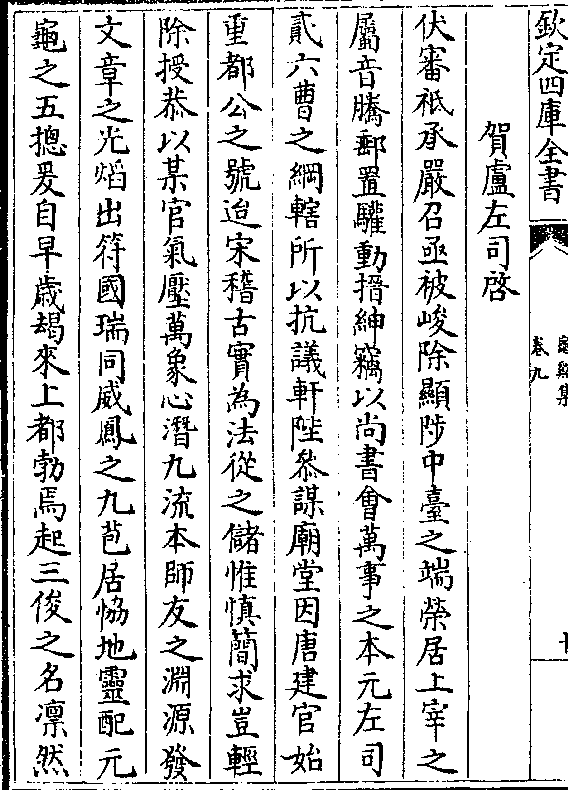 欽定四庫全書
龜谿集
卷九
賀盧左司啓
伏審祗承嚴召亟被峻除顯陟中臺之端榮居上宰之
屬音騰郵置驩動搢紳竊以尚書會萬事之本元左司
貳六曹之綱轄所以抗議軒陛叅謀廟堂因唐建官始
重都公之號迨宋稽古實為法從之儲惟慎簡求豈輕
除授恭以某官氣壓萬象心潛九流本師友之淵源發
文章之光熖出符國瑞同威鳳之九苞居恊地靈配元
龜之五摠爰自早歲朅來上都勃焉起三俊之名凛然